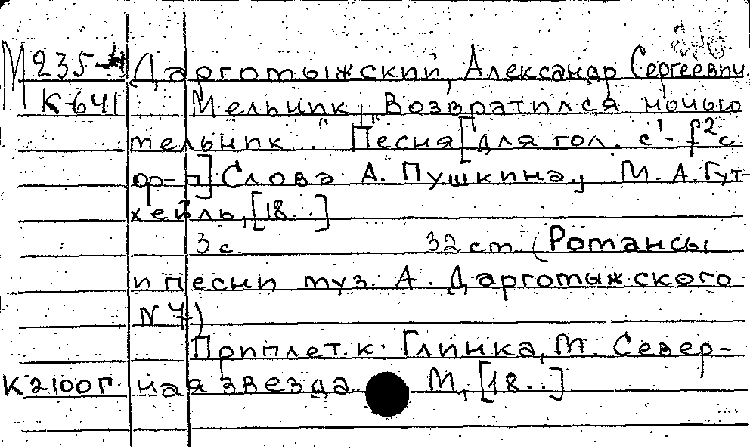 М 235-4 Даргомыжский, Александр Сергеевич
К 641 Мельник. "Возвратился ночью
мельник". Песня [для гол. c¹-f² с
ор-п] Слова А. Пушкина, М. А. Гут
хейль, [18..]
3 с 32 см (Романсы
и песни муз. А. Даргомыжского
N 7)
Приплет. к: Глинка, М. Север-
К 2100г. ная звезда М, [18..]